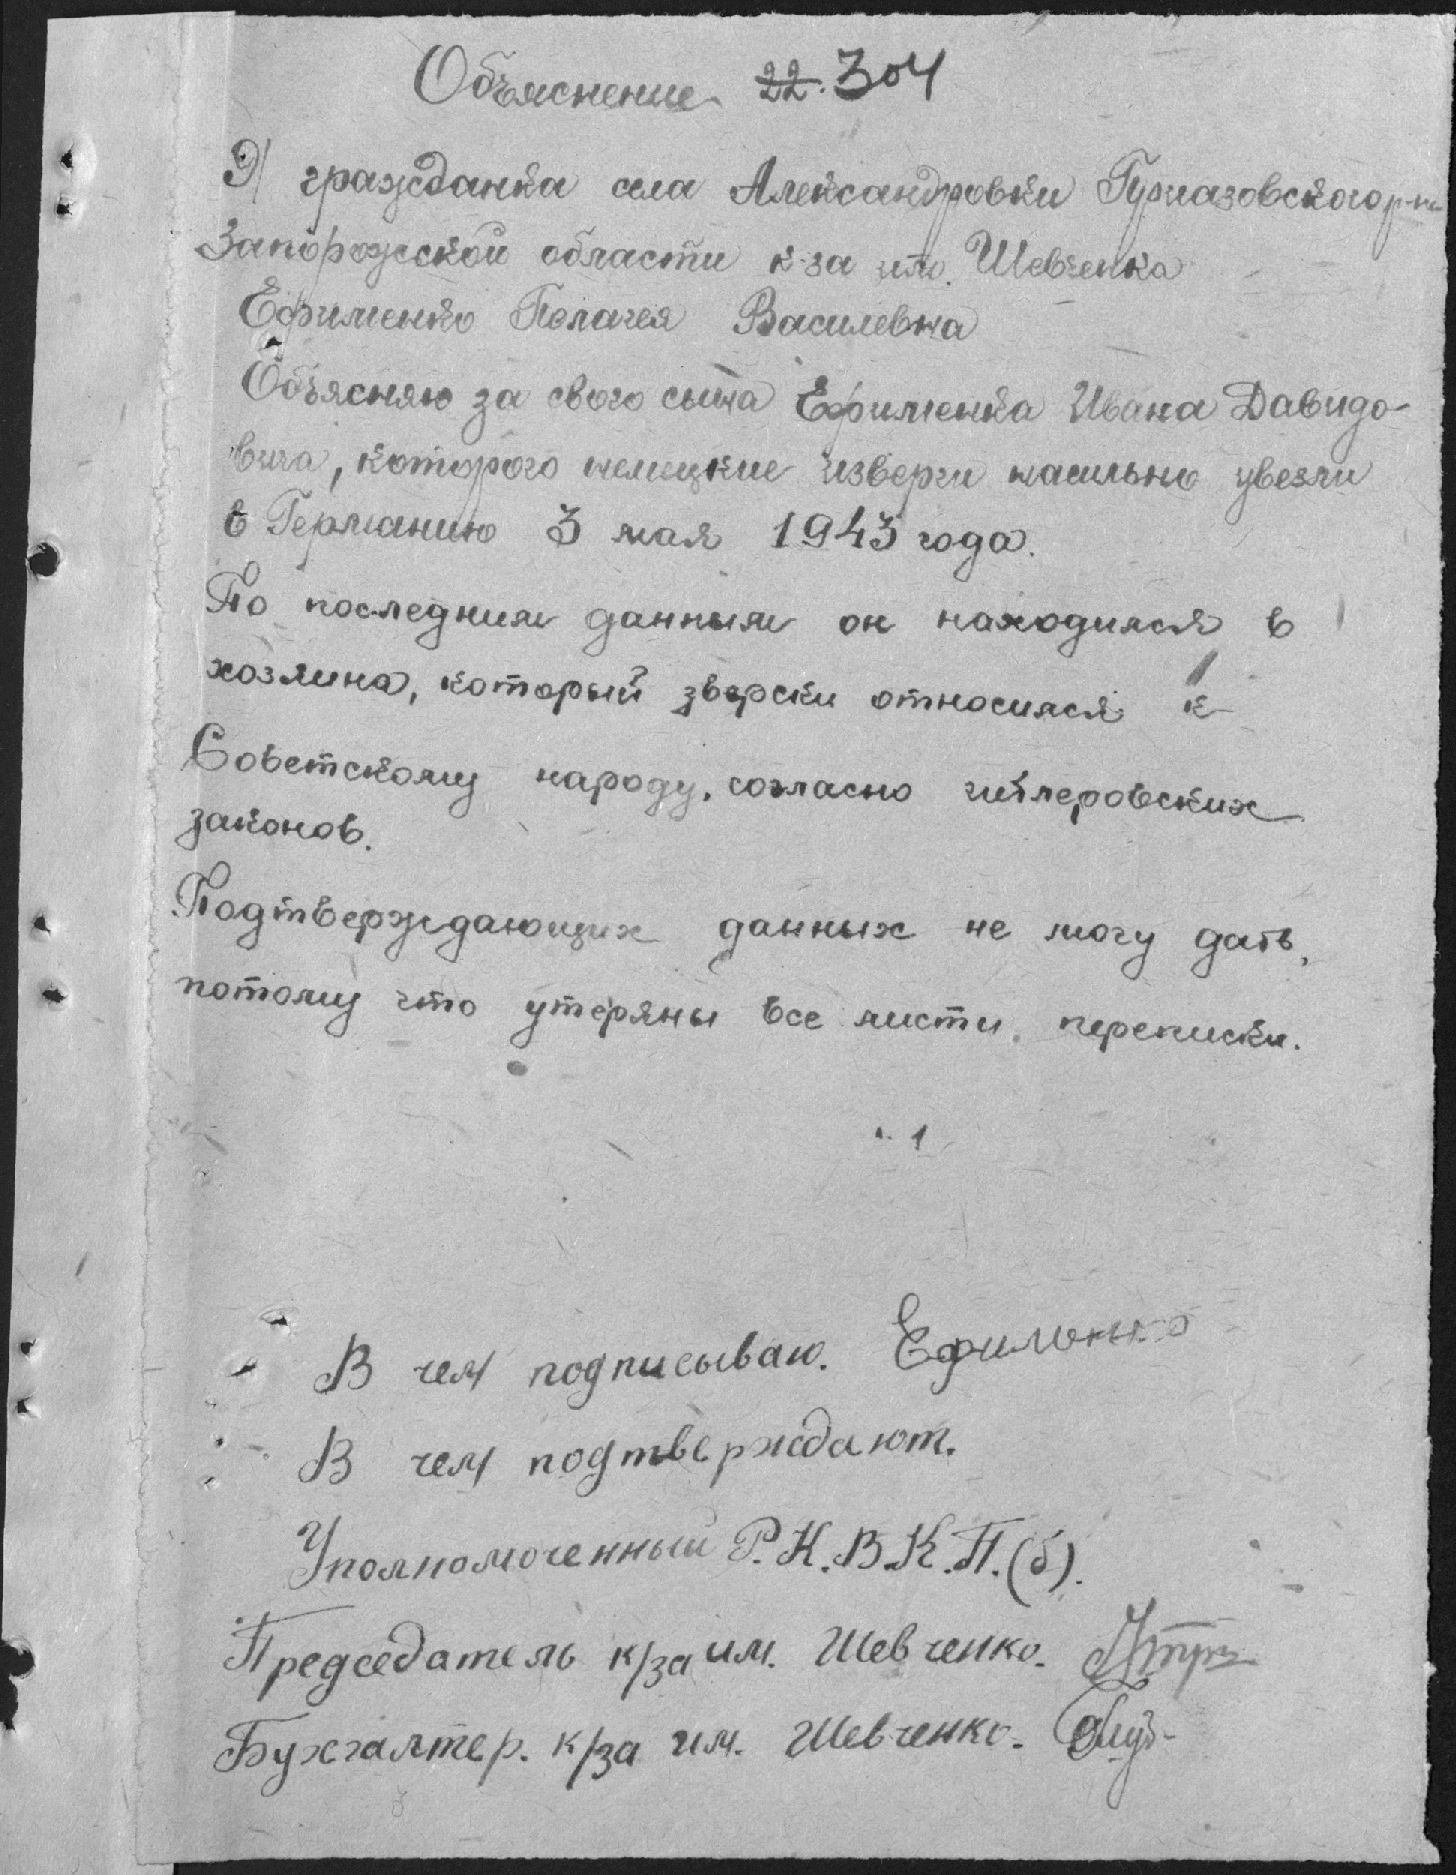 Объяснение 22. 304
Я гражданка села Александровки Приазовского р-на
Запорожской области к-за им. Шевченка
Ефименко Пелагея Василевна
Объясняю за свого сына Ефименка Ивана Давидо-
вича, которого немецкие изверги насильно увезли
в Германию 3 мая 1943 года.
По последним данным он находился в
хозяина, который зверски относился к
Советскому народу, согласно гитлеровских
законов.
Подтверждающих данных не могу дать,
потому что утеряны все листи переписки.
В чем подписываю. Ефименко
В чем подтверждают.
Уполномоченный Р.К.В.К.П.(б).
Председатель к/за им. Шевченко.
Бухгалтер. к/за им. Шевченко.